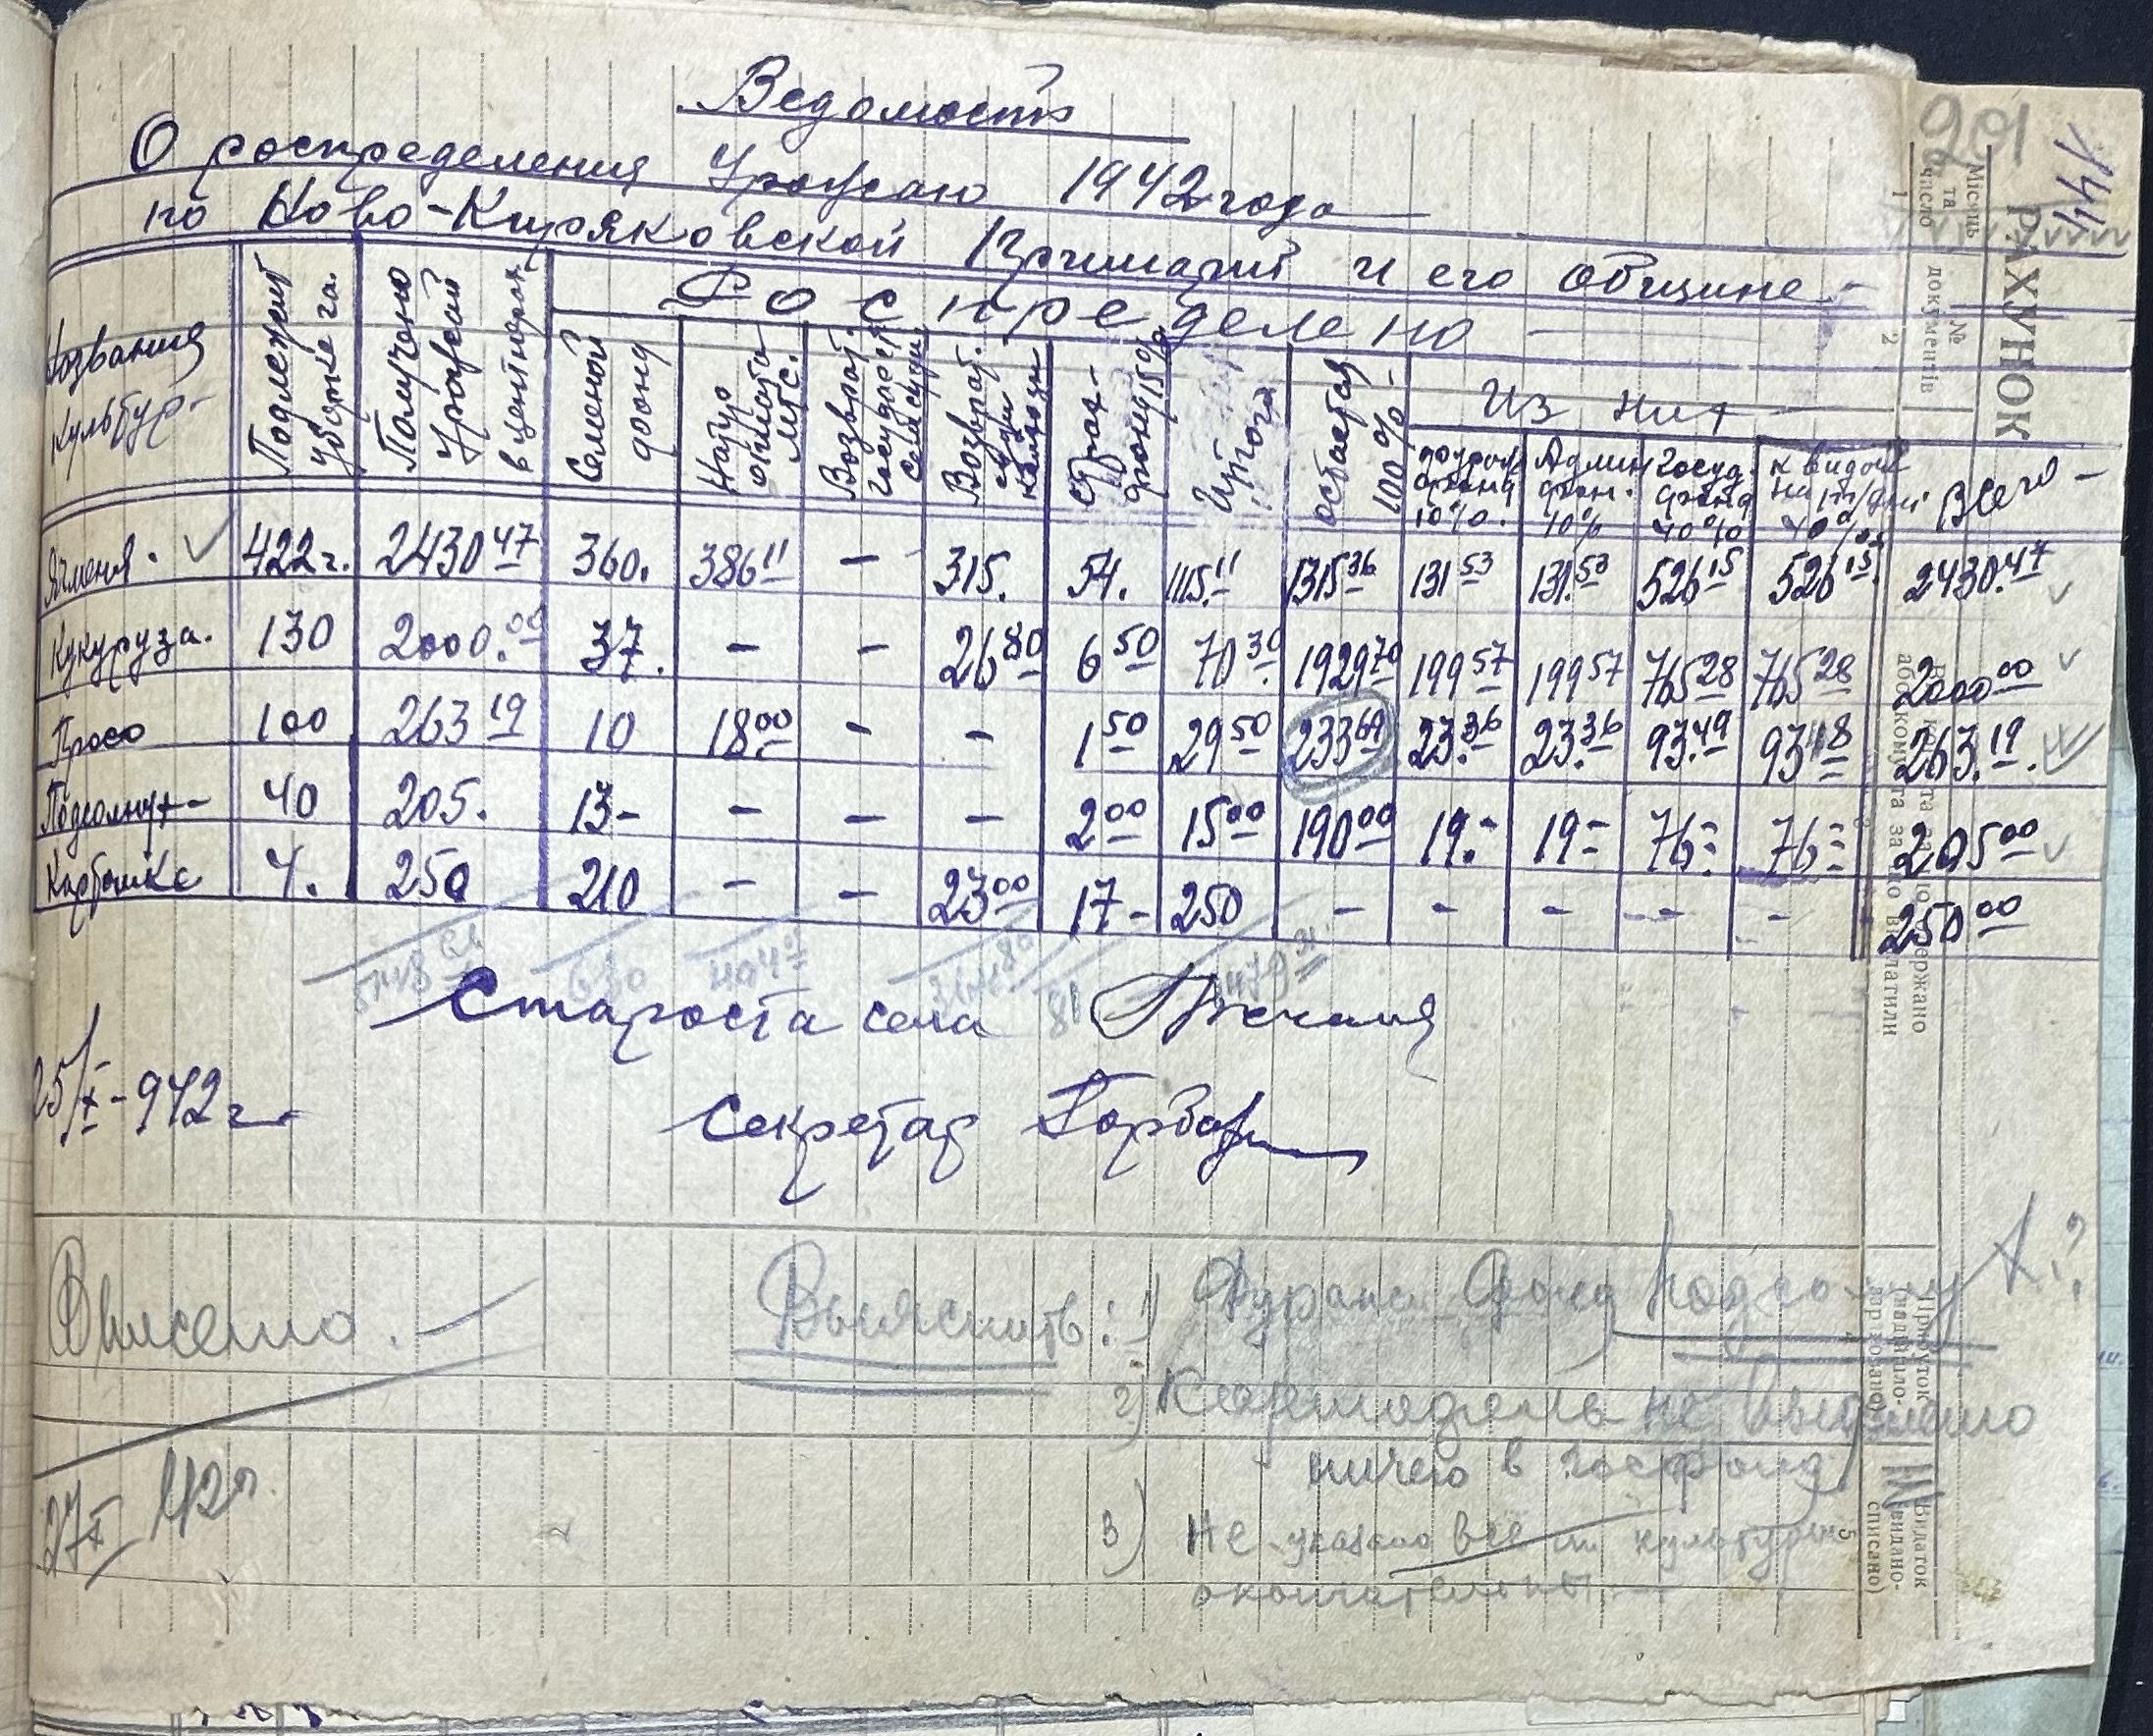 201
144
Ведомость
О роспределения Урожаю 1942 года
по Ново-Киряковской Примарий и его общине -
Названия культур - | Подлежит уборке га. | Получено Урожай в центнерах | Роспределено
Семеной фонд | Натур оплата МТС. | Возврат. государст. сем ссуды | Возврат. ссуди | Страх- фонд 15% | Итого | остается 100% - | Из них -
фураж фонд 10%. | Админ фон. 10% | Госуд. фонд 40% | к видачи на тр/дни. 40% | Всего -
Ячменя. | 422 г. | 2430 47 | 360. | 386 11 | - | 315. | 54. | 1115. 11 | 1315 36 | 131 53 | 131. 53 | 526 15 | 526 15 | 2430. 47
Кукуруза. | 130 | 2000. 00 | 37. | - | - | 26 80 | 6 50 | 70 30 | 1929 70 | 199 57 | 199 57 | 765 28 | 765 28 | 2000 00
Просо | 100 | 263 19 | 10 | 18 00 | - | - | 1 50 | 29 50 | 233 69 | 23. 36 | 23. 36 | 93. 49 | 93 48 | 263. 19.
Подсолнух - | 40 | 205. | 13 - | - | - | - | 2 00 | 15 00 | 190 00 | 19. - | 19 - | 76 - | 76 - | 205 00
Картошка | 4. | 250 | 210 | - | - | 23 00 | 17 - | 250 | - | - | - | - | - | 250 00
630 404 11 364 80 81 1479 91
Староста села
25/X - 942 г.
Секретар
Внесено. -
27/X 42 г.
Выяснить: 1) Фураж. Фонд Подсолнух?
2) Картофель не выделено
ничего в госфонд
3) Не указано все ли культуры
окончательны. -
РАХУНОК
Місяць та число
№ документів
1
2
5
Прибуток
Видаток
(видано-
списано)